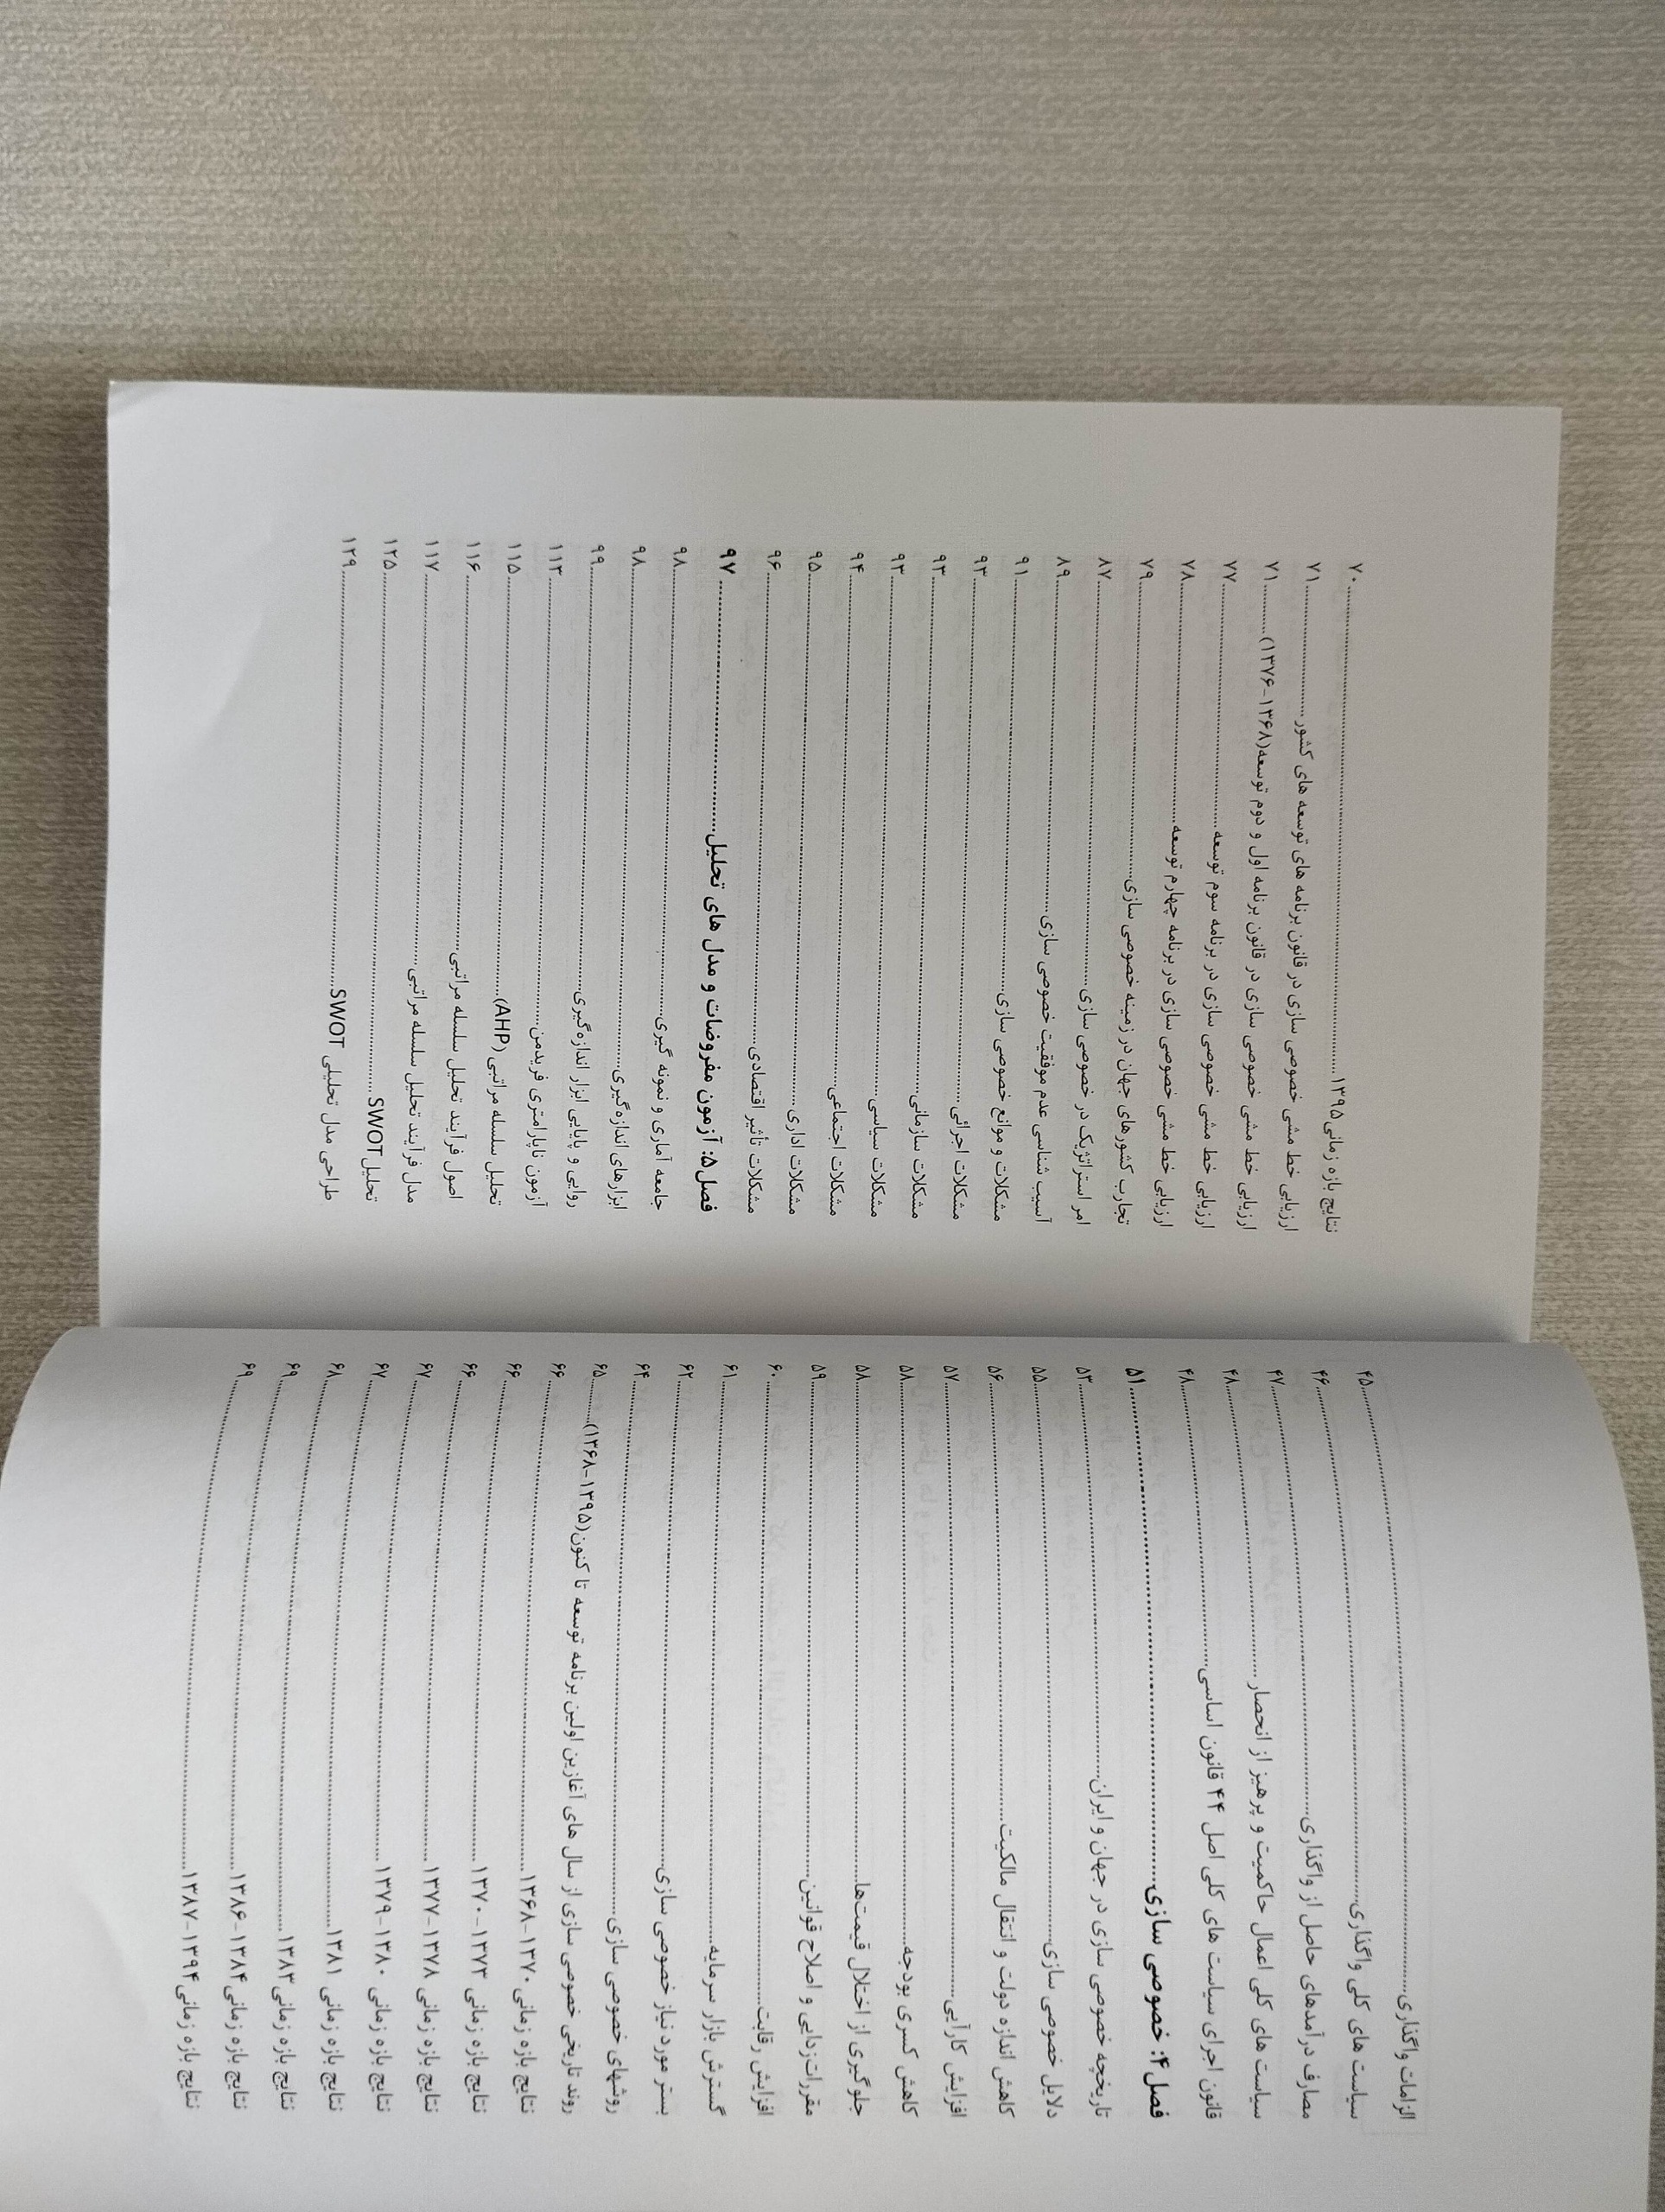 الزامات واگذاری ۴۵
سیاست های کلی واگذاری ۴۶
مصارف درآمدهای حاصل از واگذاری ۴۷
سیاست های کلی اعمال حاکمیت و پرهیز از انحصار ۴۸
قانون اجرای سیاست های کلی اصل ۴۴ قانون اساسی ۴۸
فصل ۴: خصوصی سازی ۵۱
تاریخچه خصوصی سازی در جهان و ایران ۵۳
دلایل خصوصی سازی ۵۵
کاهش اندازه دولت و انتقال مالکیت ۵۶
افزایش کارآیی ۵۷
کاهش کسری بودجه ۵۸
جلوگیری از اختلال قیمت‌ها ۵۸
مقررات‌زدایی و اصلاح قوانین ۵۹
افزایش رقابت ۶۰
گسترش بازار سرمایه ۶۱
بستر مورد نیاز خصوصی سازی ۶۲
روشهای خصوصی سازی ۶۴
روند تاریخی خصوصی سازی از سال های آغازین اولین برنامه توسعه تا کنون(۱۳۹۵-۱۳۶۸) ۶۵
نتایج بازه زمانی ۱۳۷۰-۱۳۶۸ ۶۶
نتایج بازه زمانی ۱۳۷۳-۱۳۷۰ ۶۶
نتایج بازه زمانی ۱۳۷۸-۱۳۷۷ ۶۷
نتایج بازه زمانی ۱۳۸۰-۱۳۷۹ ۶۷
نتایج بازه زمانی ۱۳۸۱ ۶۸
نتایج بازه زمانی ۱۳۸۳ ۶۹
نتایج بازه زمانی ۱۳۸۴-۱۳۸۶ ۶۹
نتایج بازه زمانی ۱۳۹۴-۱۳۸۷
نتایج بازه زمانی ۱۳۹۵ ۷۰
ارزیابی خط مشی خصوصی سازی در قانون برنامه های توسعه های کشور ۷۱
ارزیابی خط مشی خصوصی سازی در قانون برنامه اول و دوم توسعه(۱۳۶۸-۱۳۷۶) ۷۱
ارزیابی خط مشی خصوصی سازی در برنامه سوم توسعه ۷۷
ارزیابی خط مشی خصوصی سازی در برنامه چهارم توسعه ۷۸
تجارب کشورهای جهان در زمینه خصوصی سازی ۷۹
امر استراتژیک در خصوصی سازی ۸۷
آسیب شناسی عدم موفقیت خصوصی سازی ۸۹
مشکلات و موانع خصوصی سازی ۹۱
مشکلات اجرائی ۹۳
مشکلات سازمانی ۹۳
مشکلات سیاسی ۹۳
مشکلات اجتماعی ۹۴
مشکلات اداری ۹۵
مشکلات تأثیر اقتصادی ۹۶
فصل ۵: آزمون مفروضات و مدل های تحلیل ۹۷
جامعه آماری و نمونه گیری ۹۸
ابزارهای اندازه‌گیری ۹۸
روایی و پایایی ابزار اندازه‌گیری ۹۹
آزمون ناپارامتری فریدمن ۱۱۳
تحلیل سلسله مراتبی (AHP) ۱۱۵
اصول فرآیند تحلیل سلسله مراتبی ۱۱۶
مدل فرآیند تحلیل سلسله مراتبی ۱۱۷
تحلیل SWOT ۱۲۵
طراحی مدل تحلیلی SWOT ۱۲۹